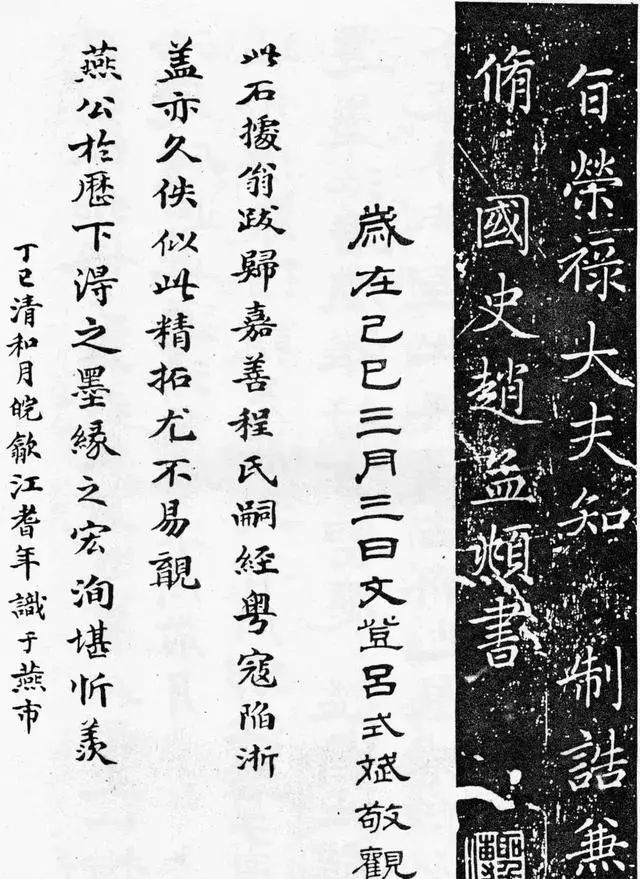 㫖榮祿大夫知 制誥兼
脩 國史趙孟頫書
歲在己巳三月三日文登呂式斌敬觀
此石據翁跋歸嘉善程氏嗣經粵寇陷浙
蓋亦久佚似此精拓尤不易覯
燕公於歷下得之墨緣之宏洵堪忻羨
丁巳清和月皖歙江耆年識于燕市